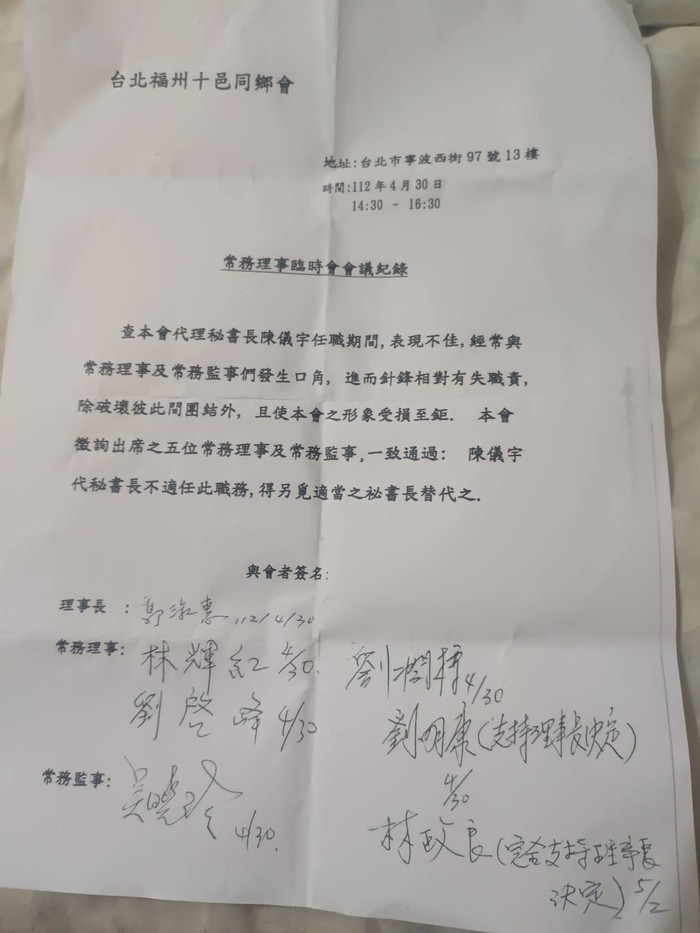 台北福州十邑同鄉會
地址:台北市寧波西街97號13樓
時間:112年4月30日
14:30 - 16:30
常務理事臨時會會議紀錄
查本會代理秘書長陳儀宇任職期間,表現不佳,經常與
常務理事及常務監事們發生口角, 進而針鋒相對有失職責,
除破壞彼此間團結外, 且使本會之形象受損至鉅. 本會
徵詢出席之五位常務理事及常務監事,一致通過: 陳儀宇
代秘書長不適任此職務,得另覓適當之祕書長替代之.
與會者簽名:
理事長 : 郭淑惠 112/4/30
常務理事: 林輝紅 4/30. 劉潤 4/30
劉啓峰 4/30 劉明康(支持理事長決定)
4/30
常務監事: 吳曉 4/30.
林政良(完全支持理事長
決定) 5/2